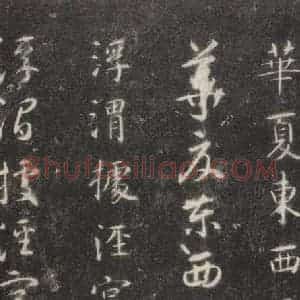 華夏東西
華夏東西
浮渭據涇宮
浮渭據涇宮
Shufaziliao.COM